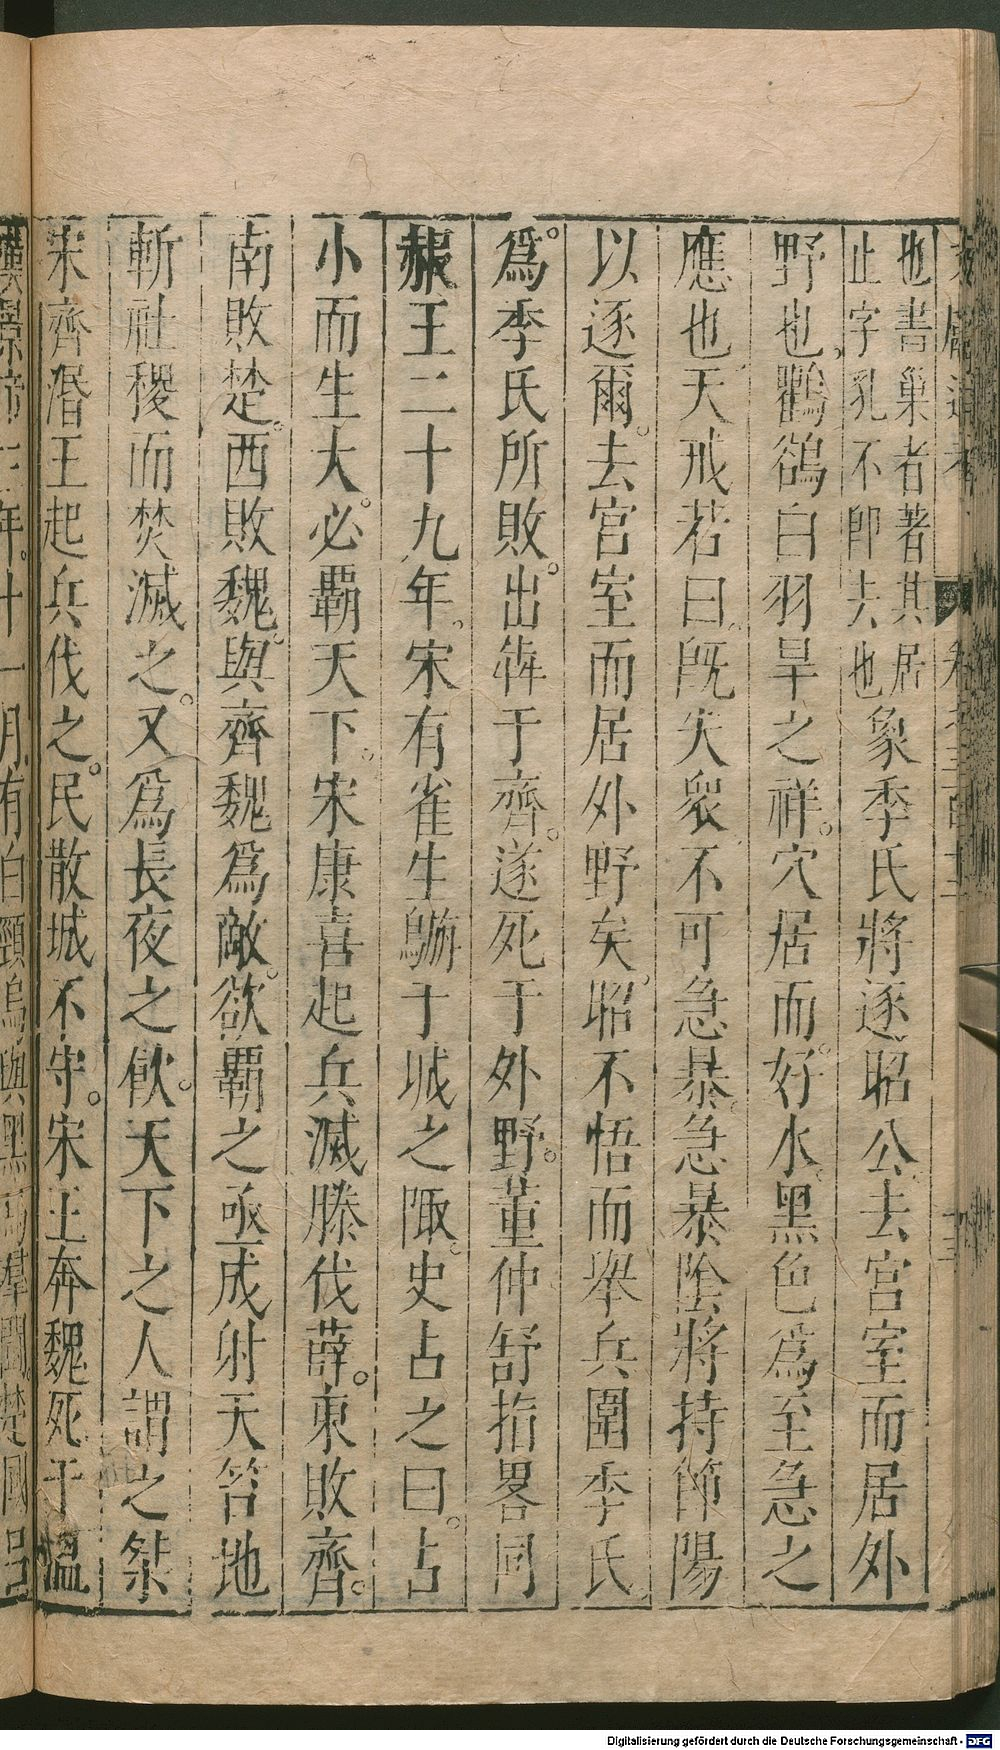 也書巢者著其居
止字乳不卽去也象季氏將逐昭公去宮室而居外
野也鸛鵒白羽旱之祥穴居而好水黑色爲至急之
應也天戒若曰旣失衆不可急暴急暴陰將持節陽
以逐爾去宮室而居外野矣昭不悟而舉兵圍季氏
爲季氏所敗出犇于齊遂死于外野董仲舒指畧同
赧王二十九年宋有雀生鸇于城之陬史占之曰占
小而生大必霸天下宋康喜起兵滅滕伐薛東敗齊
南敗楚西敗魏與齊魏爲敵欲霸之亟成射天笞地
斬社稷而焚滅之又爲長夜之飮天下之人謂之桀
宋齊湣王起兵伐之民散城不守宋王奔魏死于溫
漢景帝三年十一月有白頸烏與黑烏羣鬭楚國呂
Digitalisierung gefördert durch die Deutsche Forschungsgemeinschaft - DFG